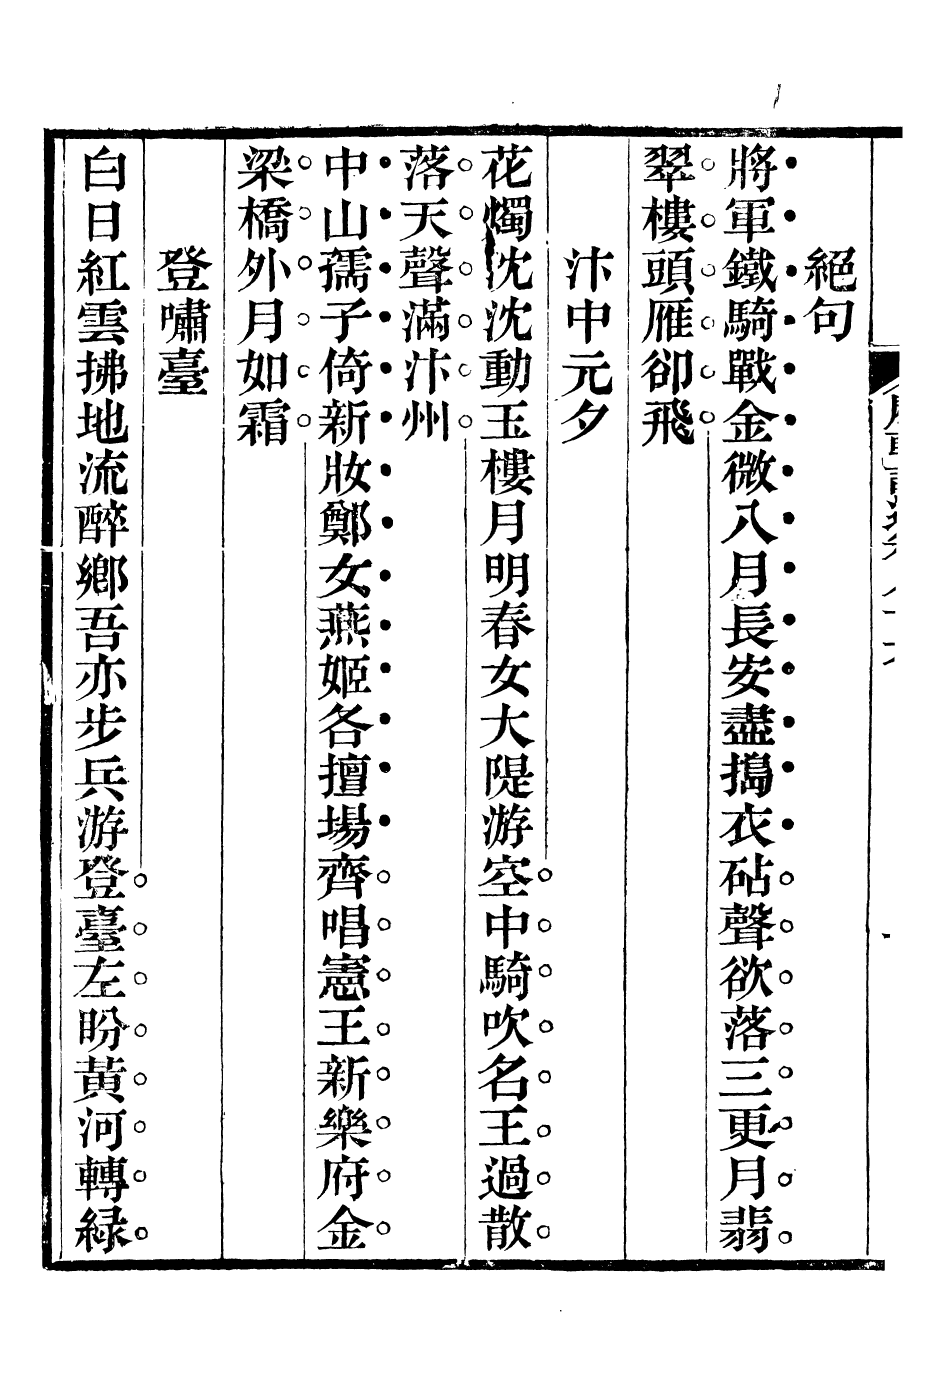 絕句
將軍鐵騎戰金微八月長安盡搗衣砧聲欲落三更月翡
翠樓頭雁卻飛
汴中元夕
花燭沈沈動玉樓月明春女大隄游空中騎吹名王過散
落天聲滿汴州
中山孺子倚新妝鄭女燕姬各擅場齊唱憲王新樂府金
梁橋外月如霜
登嘯臺
白日紅雲拂地流醉鄉吾亦步兵游登臺左盼黃河轉緑